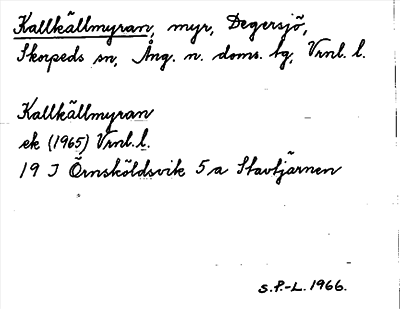 Kallkällmyran, myr, Degersjö,
Skorpeds sn, Ång. n. doms. tg, Vrnl. l.
Kallkällmyran
ek (1965) Vrnl. l.
19 J Örnsköldsvik 5 a Stavtjärnen
S.P.-L. 1966.